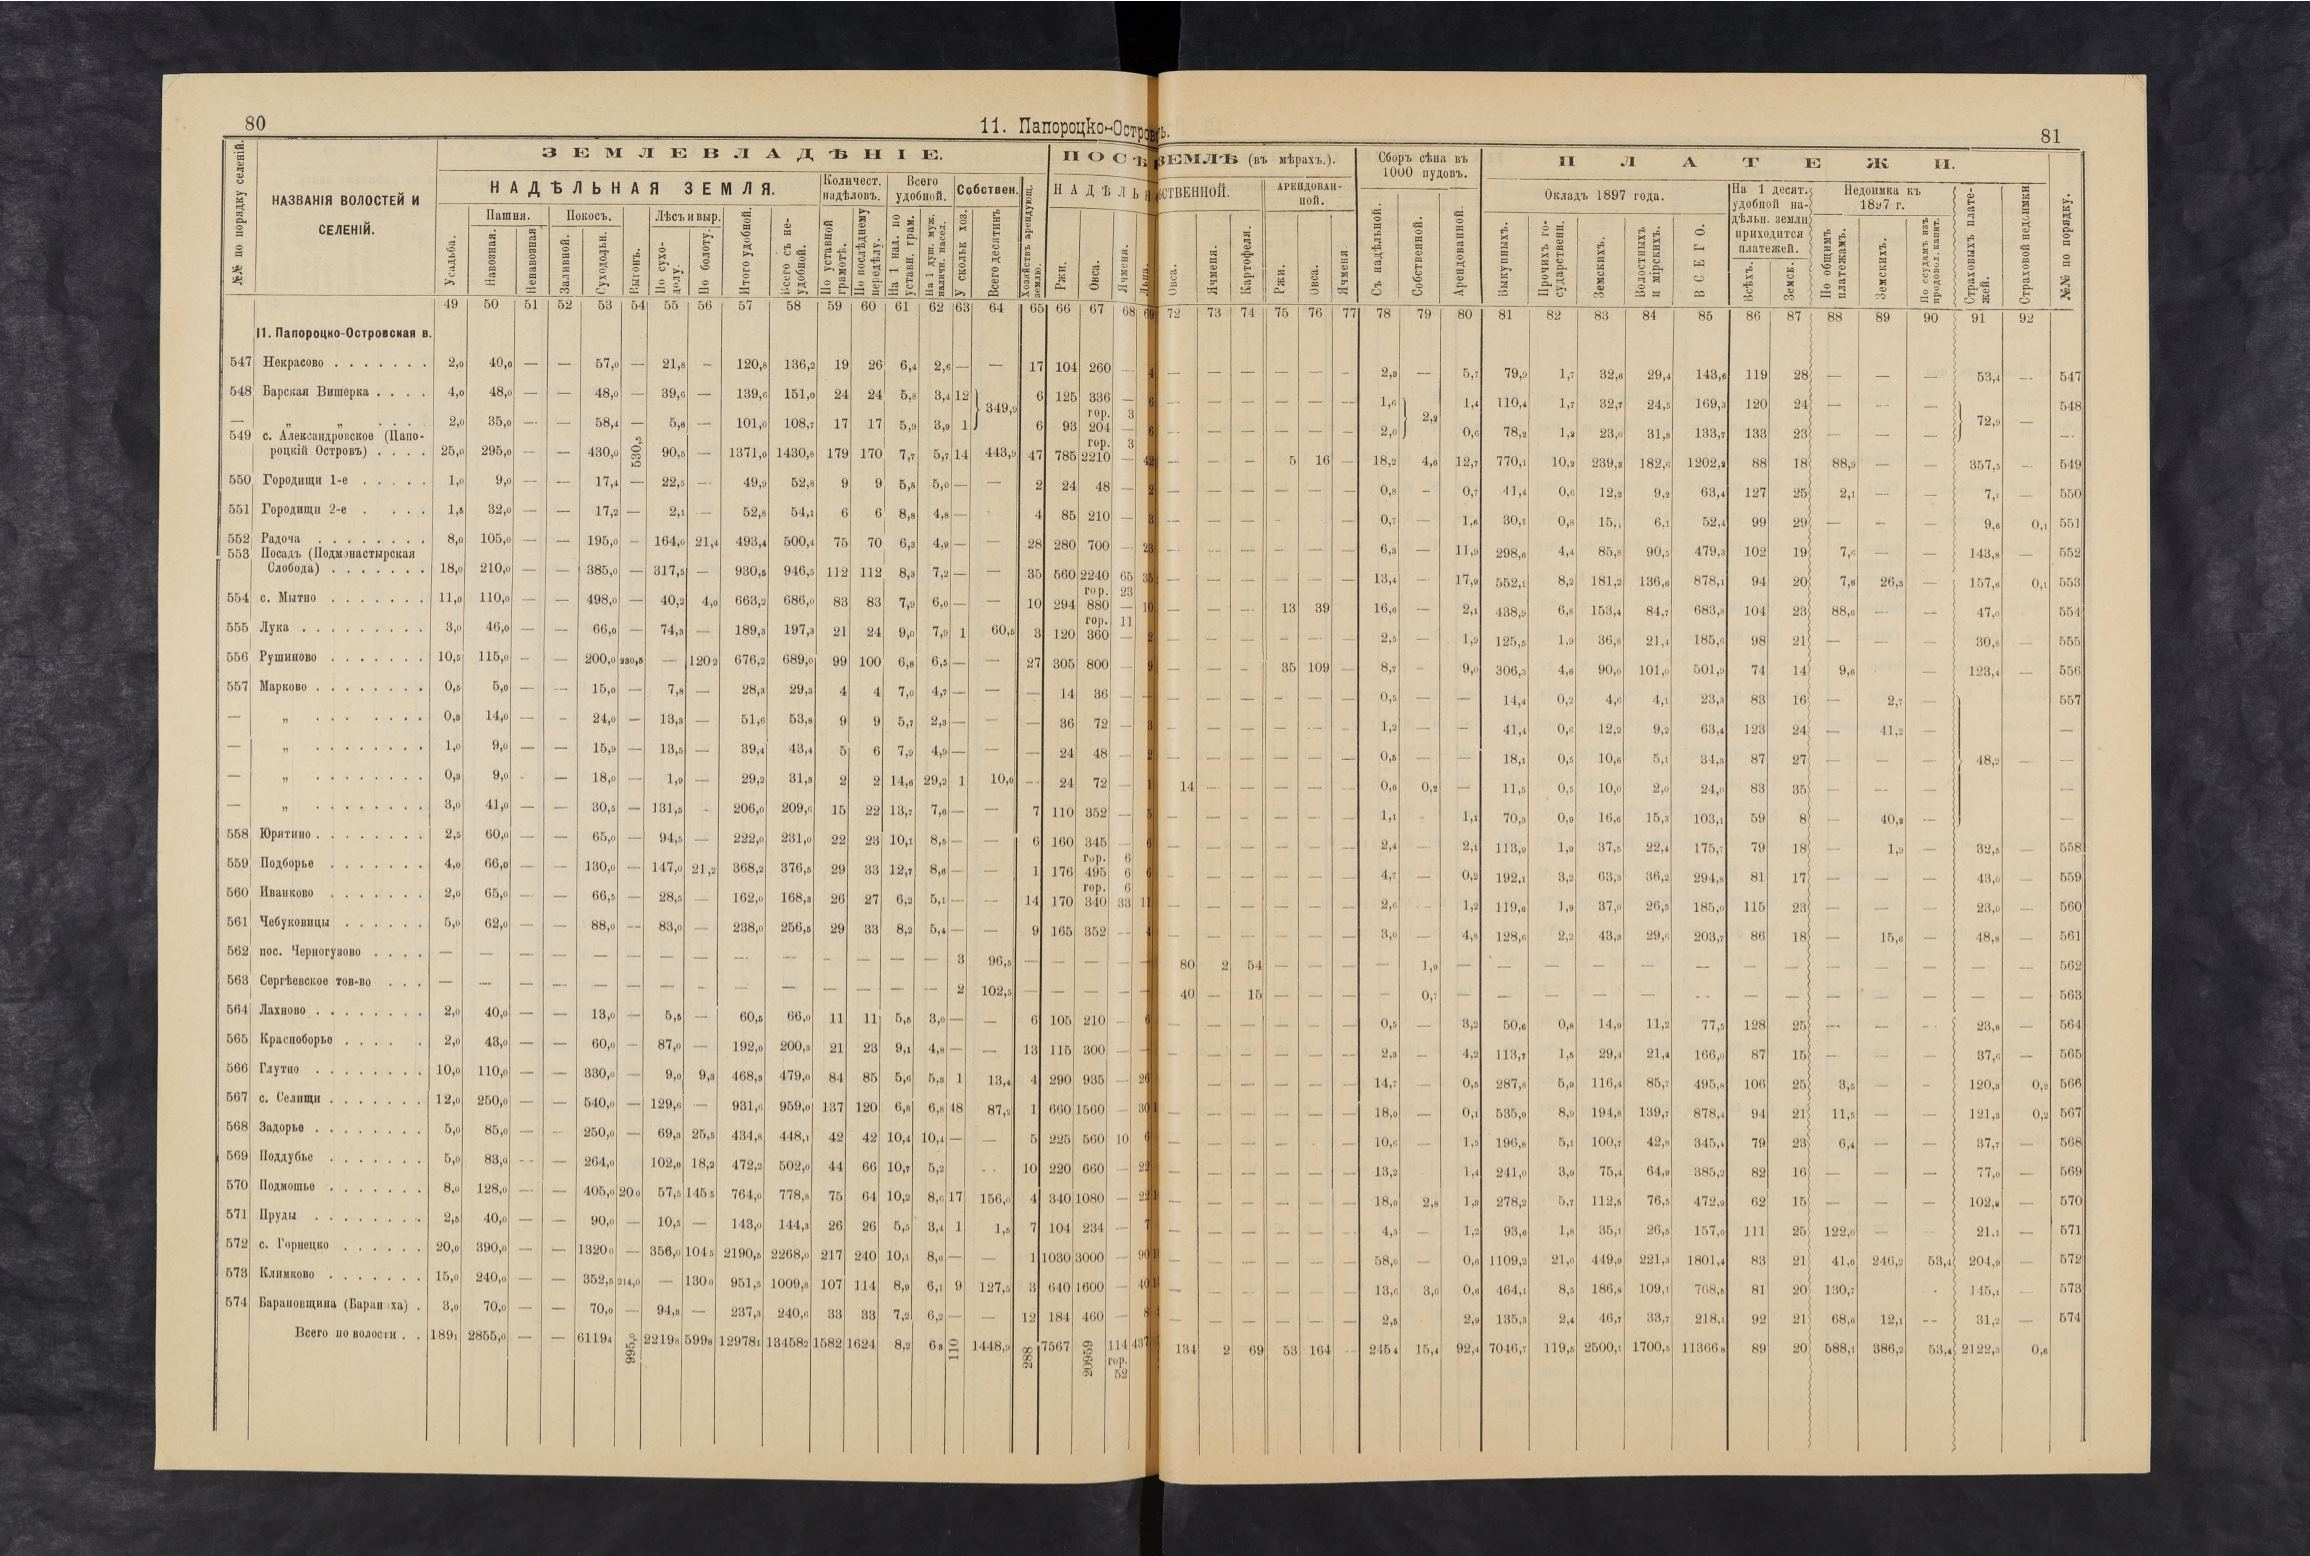 80
11. Папороцко-Островъ.
81
ЗЕМЛЕВЛАДѢНІЕ.
ПОСѢ
ЗЕМЛѢ (въ мѣрахъ.).
Сборъ сѣна въ 1000 пудовъ.
ПЛАТЕЖИ.
НАДѢЛЬНАЯ ЗЕМЛЯ.
Количест. надѣловъ.
Всего удобной.
Собствен.
НАДѢЛЬН
БСТВЕННОЙ.
АРЕНДОВАН-НОЙ.
Окладъ 1897 года.
На 1 десят. удобной на-дѣльн. земли приходится платежей.
Недоимка къ 1897 г.
№№ по порядку селеній.
НАЗВАНІЯ ВОЛОСТЕЙ И СЕЛЕНІЙ.
Усадьба.
Пашня.
Навозная.
Ненавозная
Покосъ.
Заливной.
Суходольн.
Выгонъ.
Лѣсъ и выр.
По сухо-долу.
По болоту.
Итого удобной.
Всего съ не-удобной.
По уставной грамотѣ.
По послѣднему передѣлу.
На 1 над. по уставн. грам.
На 1 душ. муж. наличн. насел.
У скольк хоз.
Всего десятинъ
Хозяйствъ арендующ. землю.
Ржи.
Овса.
Ячменя.
Льна.
Овса.
Ячменя.
Картофеля.
Ржи.
Овса.
Ячменя
Съ надѣльной.
Собственной.
Арендованной.
Выкупныхъ.
Прочихъ го-сударствени.
Земскихъ.
Волостныхъ и мірскихъ.
ВСЕГО.
Всѣхъ.
Земск.
По общимъ платежамъ.
Земскихъ.
По ссудамъ изъ продовол. капит.
Страховыхъ плате-жей.
Страховой недоимки
№№ по порядку.
49 50 51 52 53 54 55 56 57 58 59 60 61 62 63 64 65 66 67 68 69 72 73 74 75 76 77 78 79 80 81 82 83 84 85 86 87 88 89 90 91 92
11. Папороцко-Островская в.
547 Некрасово 2,0 40,0 — — 57,0 — 21,8 — 120,8 136,2 19 26 6,4 2,6 — — 17 104 260 — 4 — — — — — — 2,3 — 5,7 79,9 1,7 32,6 29,4 143,6 119 28 — — — 53,4 — 547
548 Барская Вишерка 4,0 48,0 — — 48,0 — 39,6 — 139,6 151,0 24 24 5,8 3,4 12 349,9 6 125 336 — 6 — — — — — — 1,6 2,2 1,4 110,4 1,7 32,7 24,5 169,3 120 24 — — — 72,9 — 548
гор. 3
— „ „ 2,0 35,0 — — 58,4 — 5,6 — 101,0 108,7 17 17 5,9 3,9 1 6 93 204 — 6 — — — — — — 2,0 0,6 78,2 1,2 23,0 31,3 133,7 133 23 — — — —
549 с. Александровское (Папо-
гор. 3
роцкій Островъ) 25,0 295,0 — — 430,0 530,5 90,5 — 1371,0 1430,8 179 170 7,7 5,7 14 443,9 47 785 2210 — 42 — — — 5 16 — 18,2 4,6 12,7 770,1 10,2 239,3 182,6 1202,2 88 18 88,9 — — 357,5 — 549
550 Городищи 1-е 1,0 9,0 — — 17,4 — 22,5 — 49,9 52,8 9 9 5,5 5,0 — — 2 24 48 — 2 — — — — — — 0,8 — 0,7 41,4 0,6 12,2 9,2 63,4 127 25 2,1 — — 7,7 — 550
551 Городищи 2-е 1,5 32,0 — — 17,2 — 2,1 — 52,8 54,1 6 6 8,8 4,8 — 4 85 210 — 3 — — — — — — 0,7 — 1,6 30,1 0,8 15,1 6,1 52,4 99 29 — — — 9,6 0,1 551
552 Радоча 8,0 105,0 — — 195,0 — 164,0 21,4 493,4 500,4 75 70 6,3 4,9 — — 28 280 700 — 23 — — — — — — 6,3 — 11,9 298,6 4,4 85,8 90,5 479,3 102 19 7,6 — — 143,8 — 552
553 Посадъ (Подмонастырская
Слобода) 18,0 210,0 — — 385,0 — 317,5 — 930,5 946,5 112 112 8,3 7,2 — — 35 560 2240 65 35 — — — — — — 13,4 — 17,9 552,1 8,2 181,2 136,6 878,1 94 20 7,6 26,3 — 157,6 0,1 553
гор. 23
554 с. Мытно 11,0 110,0 — — 498,0 — 40,2 4,0 663,2 686,0 83 83 7,9 6,0 — — 10 294 880 — 10 — — — 13 39 16,6 — 2,1 438,9 6,8 153,4 84,7 683,8 104 23 88,6 — — 47,0 — 554
гор. 11
555 Лука 3,0 46,0 — — 66,0 — 74,3 — 189,3 197,3 21 24 9,0 7,9 1 60,5 3 120 360 — 2 — — — — — — 2,5 — 1,9 125,5 1,9 36,8 21,4 185,6 98 21 — — — 30,8 — 555
556 Рушиново 10,5 115,0 — — 200,0 230,5 — 120 2 676,2 689,0 99 100 6,8 6,5 — — 27 305 800 — 9 — — — 35 109 — 8,7 — 9,0 306,3 4,6 90,0 101,0 501,9 74 14 9,6 — 123,4 — 556
557 Марково 0,5 5,0 — — 15,0 — 7,8 — 28,3 29,3 4 4 7,0 4,7 — — — 14 36 — — — — — — — — 0,5 — — 14,4 0,2 4,6 4,1 23,3 83 16 — 2,7 — 557
— „ 0,3 14,0 — — 24,0 — 13,3 — 51,6 53,8 9 9 5,7 2,3 — — — 36 72 — 3 — — — — — — 1,2 — — 41,4 0,6 12,2 9,2 63,4 123 24 — 41,2 — —
— „ 1,0 9,0 — — 15,9 — 13,5 — 39,4 43,4 5 6 7,9 4,9 — — — 24 48 — 2 — — — — — — 0,5 — — 18,1 0,5 10,6 5,1 34,3 87 27 — — — 48,2 — —
— „ 0,3 9,0 — — 18,0 — 1,9 — 29,2 31,3 2 2 14,6 29,2 1 10,0 — 24 72 — 1 14 — — — — — 0,6 0,2 — 11,5 0,5 10,0 2,0 24,0 83 35 — — — —
— „ 3,0 41,0 — — 30,5 — 131,5 — 206,0 209,6 15 22 13,7 7,6 — — 7 110 352 — 5 — — — — — — 1,1 — 1,1 70,3 0,9 16,6 15,3 103,1 59 8 — 40,2 — —
558 Юрятино 2,5 60,0 — — 65,0 — 94,5 — 222,0 231,0 22 23 10,1 8,5 — — 6 160 345 — 6 — — — — — — 2,4 — 2,1 113,9 1,9 37,5 22,4 175,7 79 18 — 1,9 — 32,5 — 558
гор. 6
559 Подборье 4,0 66,0 — — 130,0 — 147,0 21,2 368,2 376,5 29 33 12,7 8,6 — — 1 176 495 6 6 — — — — — — 4,7 — 0,2 192,1 3,2 63,3 36,2 294,8 81 17 — — — 43,0 — 559
гор. 6
560 Иванково 2,0 65,0 — — 66,5 — 28,5 — 162,0 168,3 26 27 6,2 5,1 — — 14 170 340 33 11 — — — — — — 2,6 — 1,2 119,6 1,9 37,0 26,5 185,0 115 23 — — — 23,0 — 560
561 Чебуковицы 5,0 62,0 — — 88,0 — 83,0 — 238,0 256,5 29 33 8,2 5,4 — — 9 165 352 — 4 — — — — — — 3,0 — 4,8 128,6 2,2 43,3 29,6 203,7 86 18 — 15,6 — 48,8 — 561
562 пос. Черногузово — — — — — — — — — — — — — — 3 96,5 — — — — — 80 2 54 — — — — 1,9 — — — — — — — — — — — — — 562
563 Сергѣевское тов-во — — — — — — — — — — — — — — 2 102,5 — — — — — 40 — 15 — — — — 0,7 — — — — — — — — — — — — — 563
564 Лахново 2,0 40,0 — — 13,0 — 5,5 — 60,5 66,0 11 11 5,5 3,0 — — 6 105 210 — 6 — — — — — — 0,5 — 3,2 50,6 0,8 14,9 11,2 77,5 128 25 — — — 23,8 — 564
565 Красноборье 2,0 43,0 — — 60,0 — 87,0 — 192,0 200,3 21 23 9,1 4,8 — — 13 115 300 — — — — — — — — 2,3 — 4,2 113,7 1,5 29,4 21,4 166,0 87 15 — — — 37,6 — 565
566 Глутно 10,0 110,0 — — 330,0 — 9,0 9,3 468,3 479,0 84 85 5,6 5,3 1 13,4 4 290 935 — 26 — — — — — — 14,7 — 0,5 287,8 5,9 116,4 85,7 495,8 106 25 3,5 — — 120,3 0,2 566
567 с. Селищи 12,0 250,0 — — 540,0 — 129,6 — 931,6 959,0 137 120 6,8 6,8 48 87,2 1 660 1560 — 30 — — — — — — 18,0 — 0,1 535,0 8,9 194,8 139,7 878,4 94 21 11,5 — — 121,3 0,2 567
568 Задорье 5,0 85,0 — — 250,0 — 69,3 25,5 434,8 448,1 42 42 10,4 10,4 — — 5 225 560 10 6 — — — — — — 10,6 — 1,5 196,8 5,1 100,7 42,8 345,4 79 23 6,4 — — 37,7 — 568
569 Поддубье 5,0 83,0 — — 264,0 102,0 18,2 472,2 502,0 44 66 10,7 5,2 10 220 660 — 22 — — — — — — 13,2 1,4 241,0 3,9 75,4 64,9 385,2 82 16 — — — 77,0 — 569
570 Подмошье 8,0 128,0 — — 405,0 20 0 57,5 145 5 764,0 778,8 75 64 10,2 8,6 17 156,0 4 340 1080 — 22 — — — — — — 18,0 2,8 1,3 278,2 5,7 112,5 76,5 472,9 62 15 — — — 102,8 — 570
571 Пруды 2,5 40,0 — — 90,0 — 10,5 — 143,0 144,3 26 26 5,5 3,4 1 1,5 7 104 234 — 7 — — — — — — 4,3 — 1,2 93,6 1,8 35,1 26,5 157,0 111 25 122,0 — 21,1 — 571
572 с. Горнецко 20,0 390,0 — — 1320 0 — 356,0 104 5 2190,5 2268,0 217 240 10,1 8,6 — — 1 1030 3000 — 90 — — — — — — 58,0 — 0,6 1109,2 21,0 449,9 221,3 1801,4 83 21 41,0 246,2 53,4 204,9 — 572
573 Климково 15,0 240,0 — — 352,5 214,0 — 130 0 951,5 1009,8 107 114 8,9 6,1 9 127,5 3 640 1600 — 40 — — — — — — 13,6 3,0 0,6 464,1 8,5 186,8 109,1 768,5 81 20 130,7 145,1 — 573
574 Барановщина (Бараниха) 3,0 70,0 — — 70,0 — 94,3 — 237,3 240,6 33 33 7,2 6,2 — — 12 184 460 — 8 — — — — — — 2,5 2,9 135,3 2,4 46,7 33,7 218,1 92 21 68,6 12,1 — 31,2 — 574
Всего по волости 189 1 2855,0 — — 6119 4 995,0 2219 8 599 8 12978 1 13458 2 1582 1624 8,2 6 3 110 1448,9 288 7567 20959 114 437 134 2 69 53 164 — 245 4 15,4 92,4 7046,7 119,5 2500,1 1700,5 11366 8 89 20 588,1 386,2 53,4 2122,3 0,6
гор. 52